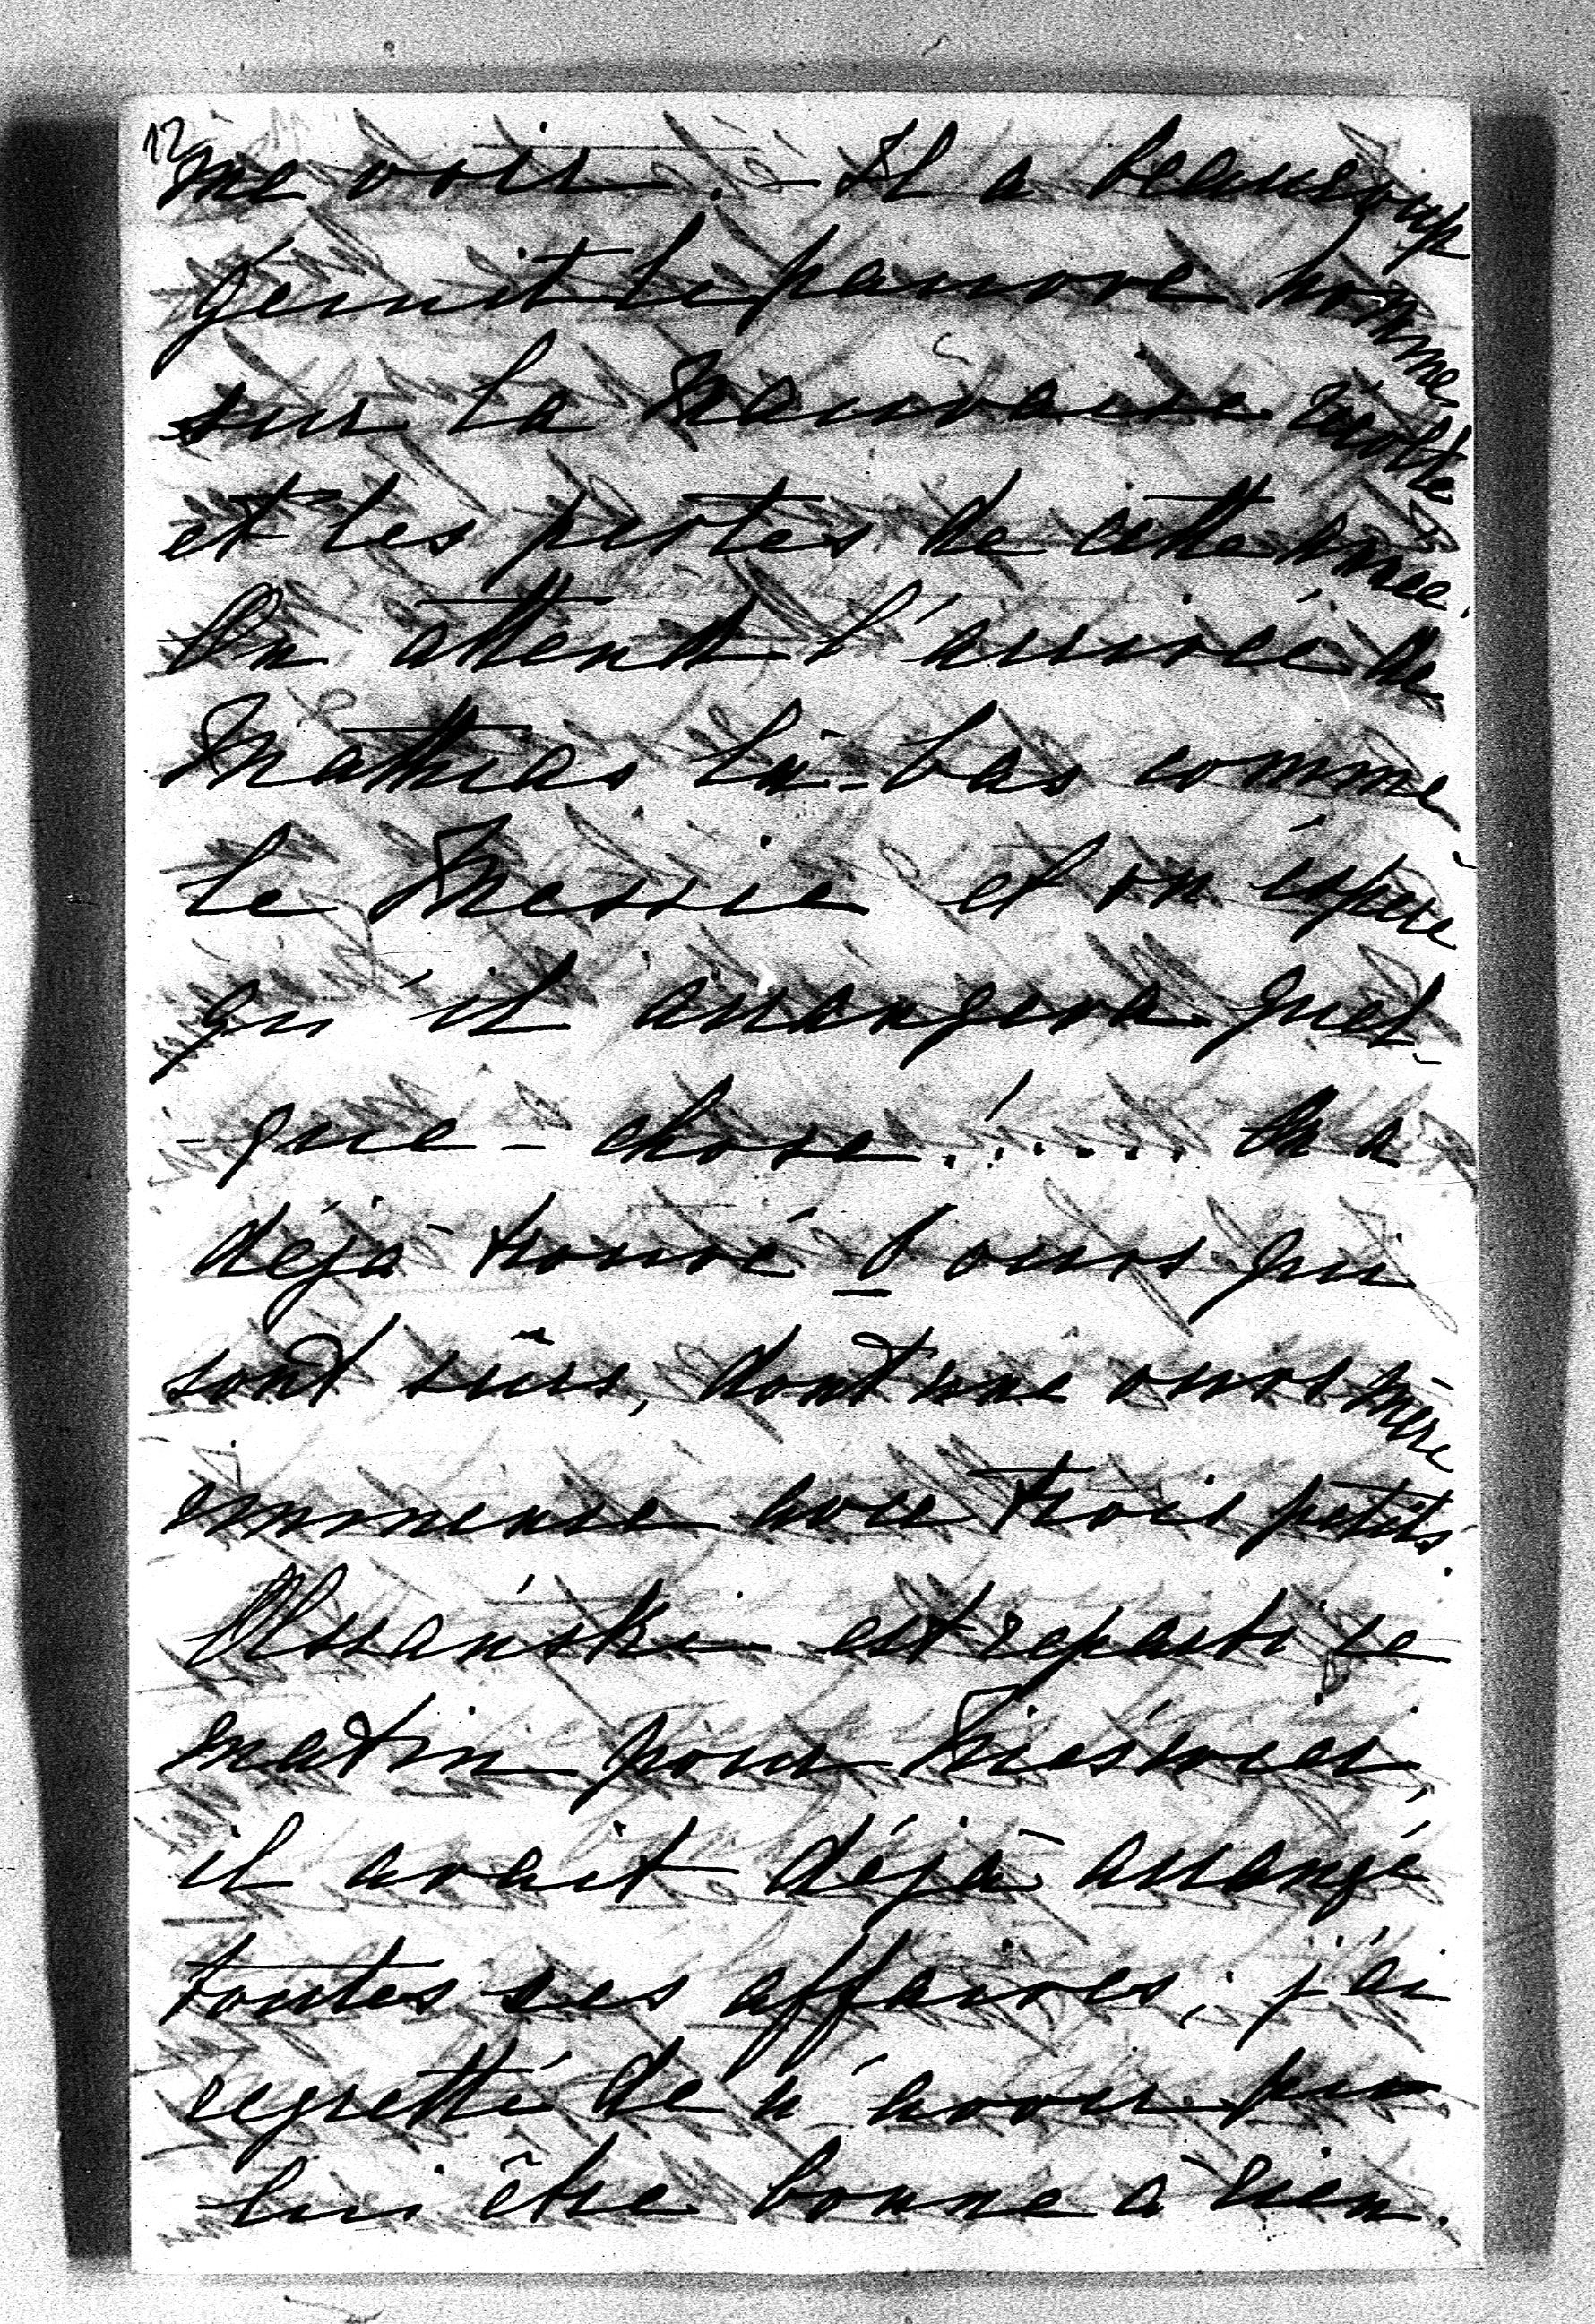 12
me voir. – Il a beaucoup
gémit le pauvre homme
sur la mauvaise récolte
et les pertes de cette année.
On attend l'arrivée de
Mathias là-bas comme
le Messie et on éspère
qu'il arrangera quel-
-que-chose!..... On a
déjà trouvé 6 ours qui
sont sûrs, dont une ours mère
immense avec trois petits.
Olszański est reparti ce
matin pour
il avait déjà arrangé
toutes ses affaires; j'ai
regretté de n'avoir pu
lui être bonne à rien.